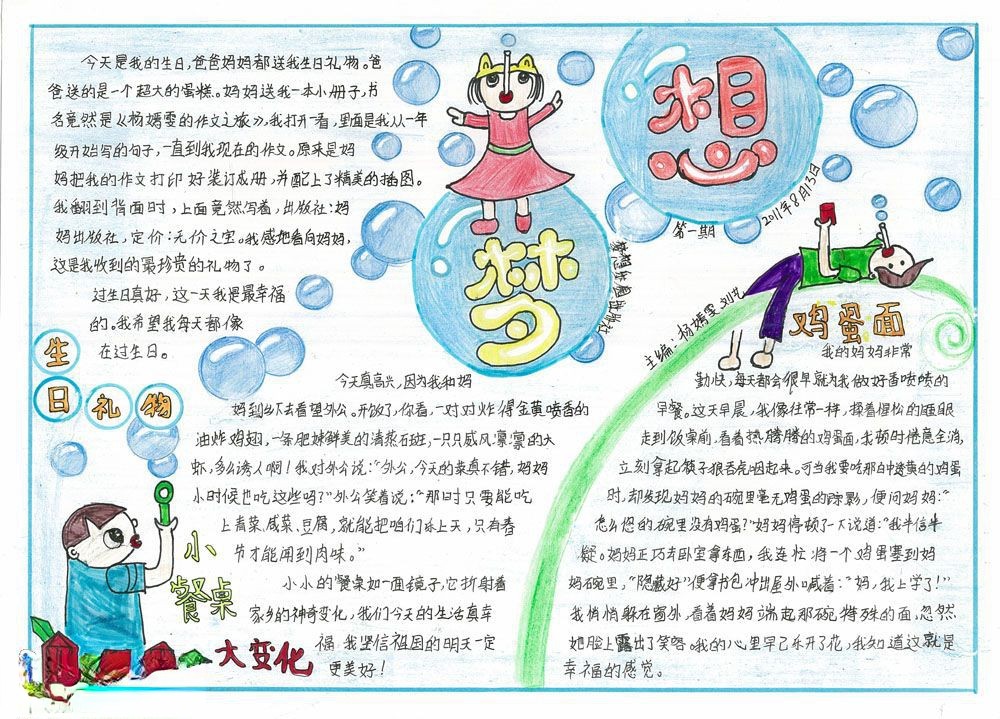 梦想
第一期
2011年8月13日
梦想的翅膀出版社
主编：杨嫣雯
生日礼物
今天是我的生日，爸爸妈妈都送我生日礼物。爸
爸送的是一个超大的蛋糕。妈妈送我一本小册子，书
名竟然是《杨嫣雯的作文之旅》，我打开一看，里面是我从一年
级开始写的句子，一直到我现在的作文。原来是妈
妈把我的作文打印好装订成册，并配上了精美的插图。
我翻到背面时，上面竟然写着，出版社：妈
妈出版社，定价：无价之宝。我感地看向妈妈，
这是我收到的最珍贵的礼物了。
过生日真好，这一天我是最幸福
的。我希望我每天都像
在过生日。
小餐桌
大变化
今天真高兴，因为我和妈
妈到乡下去看望外公。开饭了，你看，一对对炸得金黄喷香的
油炸鸡翅，一条肥辣鲜美的清蒸石斑，一只只威风凛凛的大
虾，多么诱人啊！我对外公说：“外公，今天的菜真不错，妈妈
小时候也吃这些吗？”外公笑着说：“那时只要能吃
上青菜、咸菜、豆腐，就能把咱们乐上天，只有春
节才能闻到肉味。”
小小的餐桌如一面镜子，它折射着
家乡的神奇变化，我们今天的生活真幸
福 我坚信祖国的明天一定
更美好！
鸡蛋面
我的妈妈非常
勤快，每天都会很早就为我做好香喷喷的
早餐。这天早晨，我像往常一样，揉着惺松的睡眼
走到饭桌前，看着热腾腾的鸡蛋面，我顿时倦意全消，
立刻拿起筷子狼吞虎咽起来。可当我要吃那白中透黄的鸡蛋
时，却发现妈妈的碗里毫无鸡蛋的踪影，便问妈妈：“
怎么您的碗里没有鸡蛋？”妈妈停顿了一下说道：“我半信半
疑。妈妈正巧去卧室拿东西，我连忙将一个鸡蛋塞到妈
妈碗里，“隐藏好”便拿书包冲出屋外喊着：“妈，我上学了！”
我悄悄躲在窗外，看着妈妈端起那碗特殊的面，忽然
她脸上露出了笑容。我的心里早已乐开了花，我知道这就是
幸福的感觉。